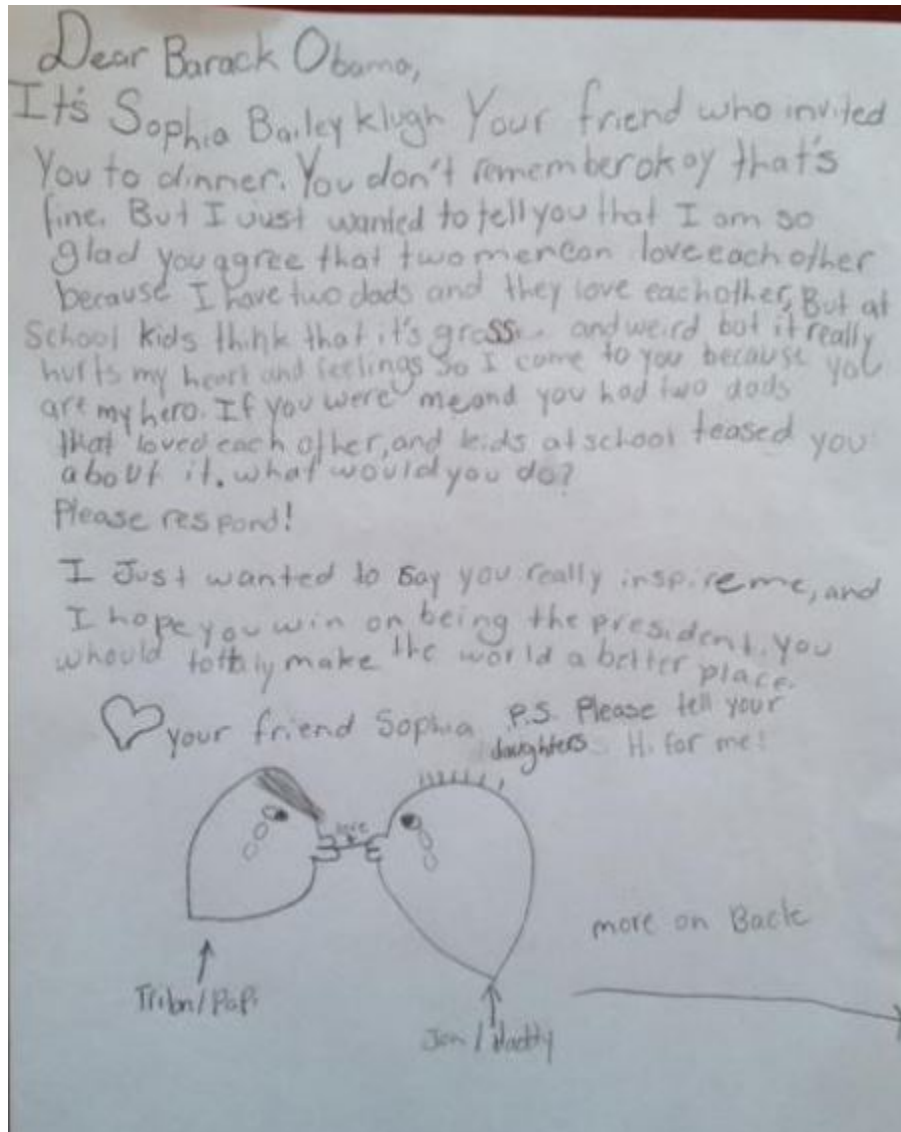 Dear Barack Obama,
It's Sophia Bailey klugh Your friend who invited
You to dinner. You don't remember okay that's
fine. But I Just wanted to tell you that I am so
glad you agree that two men can love each other
because I have two dads and they love each other. But at
School kids think that it's gross and weird but it really
hurts my heart and feelings So I come to you because you
are my hero. If you were me and you had two dads
that loved each other, and kids at school teased you
about it. what would you do?
Please respond!
I Just wanted to say you really inspire me, and
I hope you win on being the president. you
whould totaly make the world a better place.
your friend Sophia
P.S. Please tell your
daughters Hi for me!
love
more on Back
/Papi
Jon / Daddy